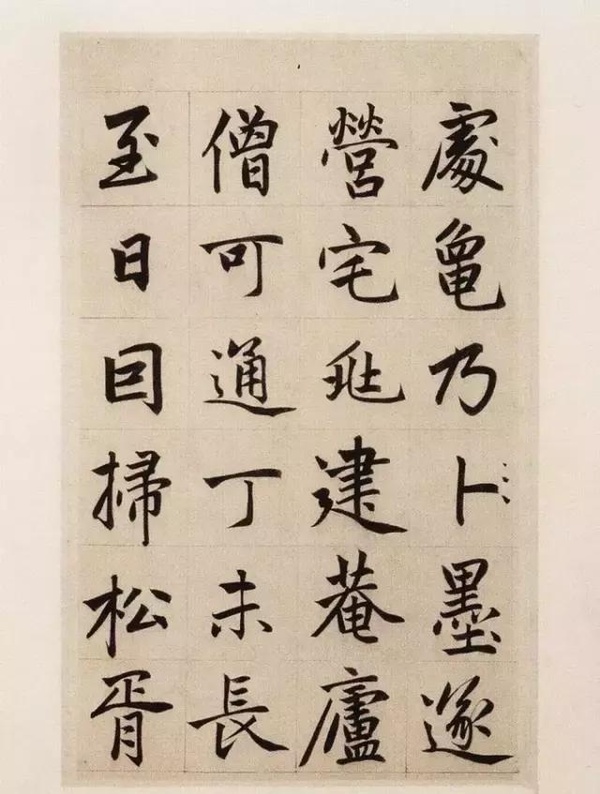 處龜乃卜墨遂
營宅兆建菴廬
僧可通丁未長
至日囙掃松胥